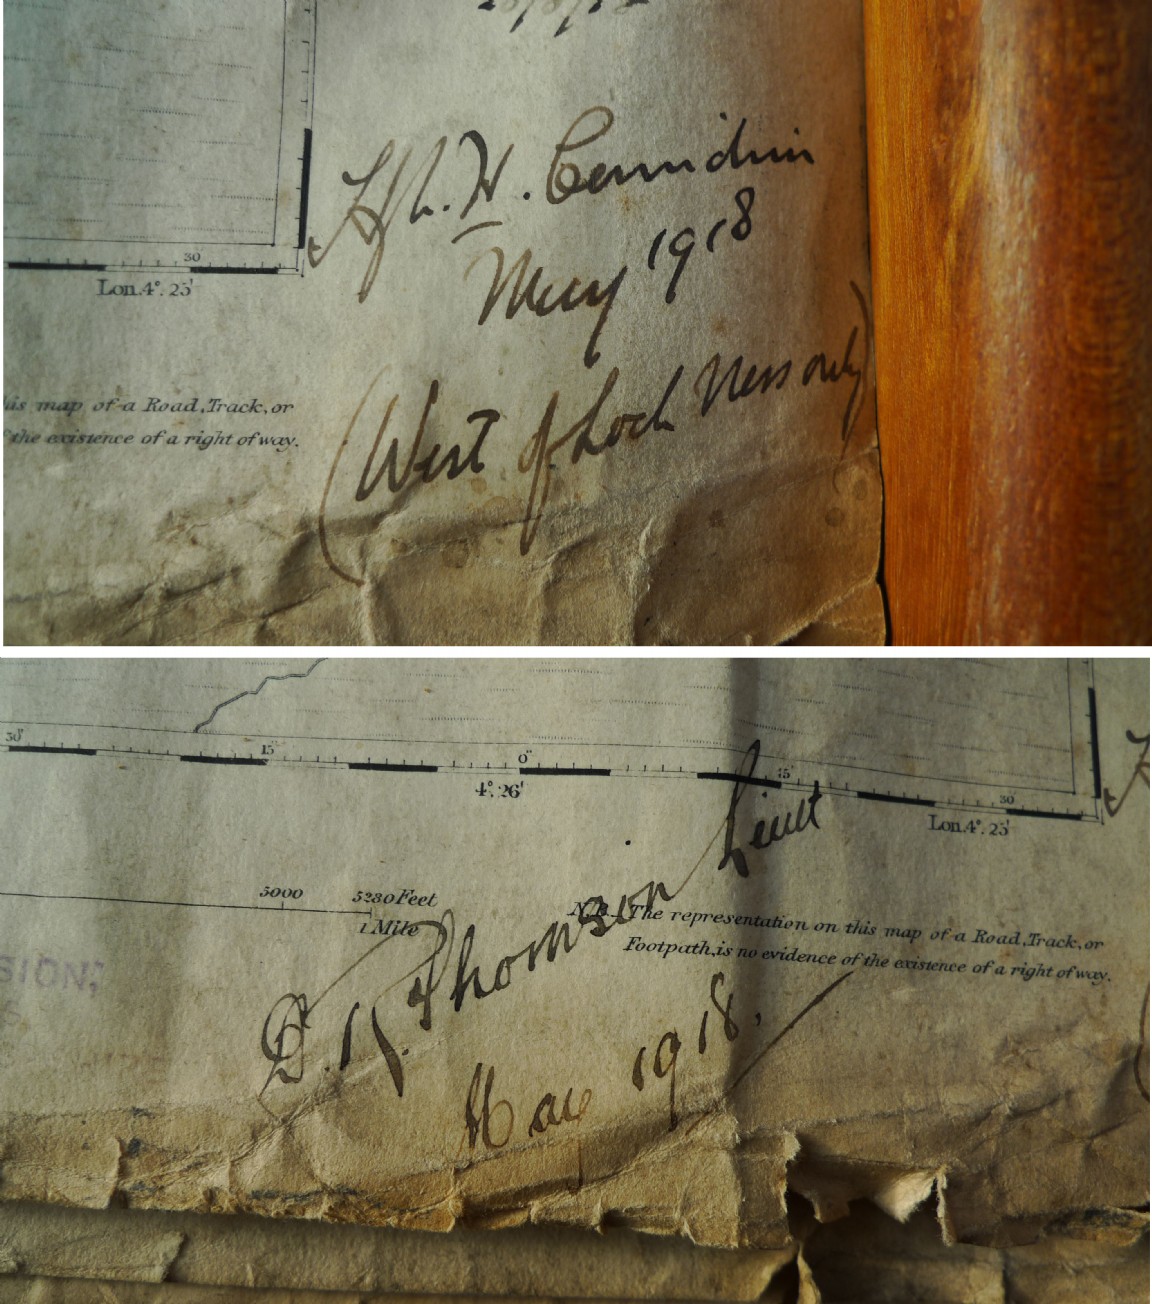 30
Lon. 4°. 25'
May 1918
(West of Loch Ness only)
his map of a Road, Track, or
f the existence of a right of way.
30"
15"
0"
45"
30
4°. 26'
Lon. 4°. 25'
Lieut
5000
5280 Feet
1 Mile
D. Thomson
N.B.—The representation on this map of a Road, Track, or
Footpath, is no evidence of the existence of a right of way.
SION;
1918.